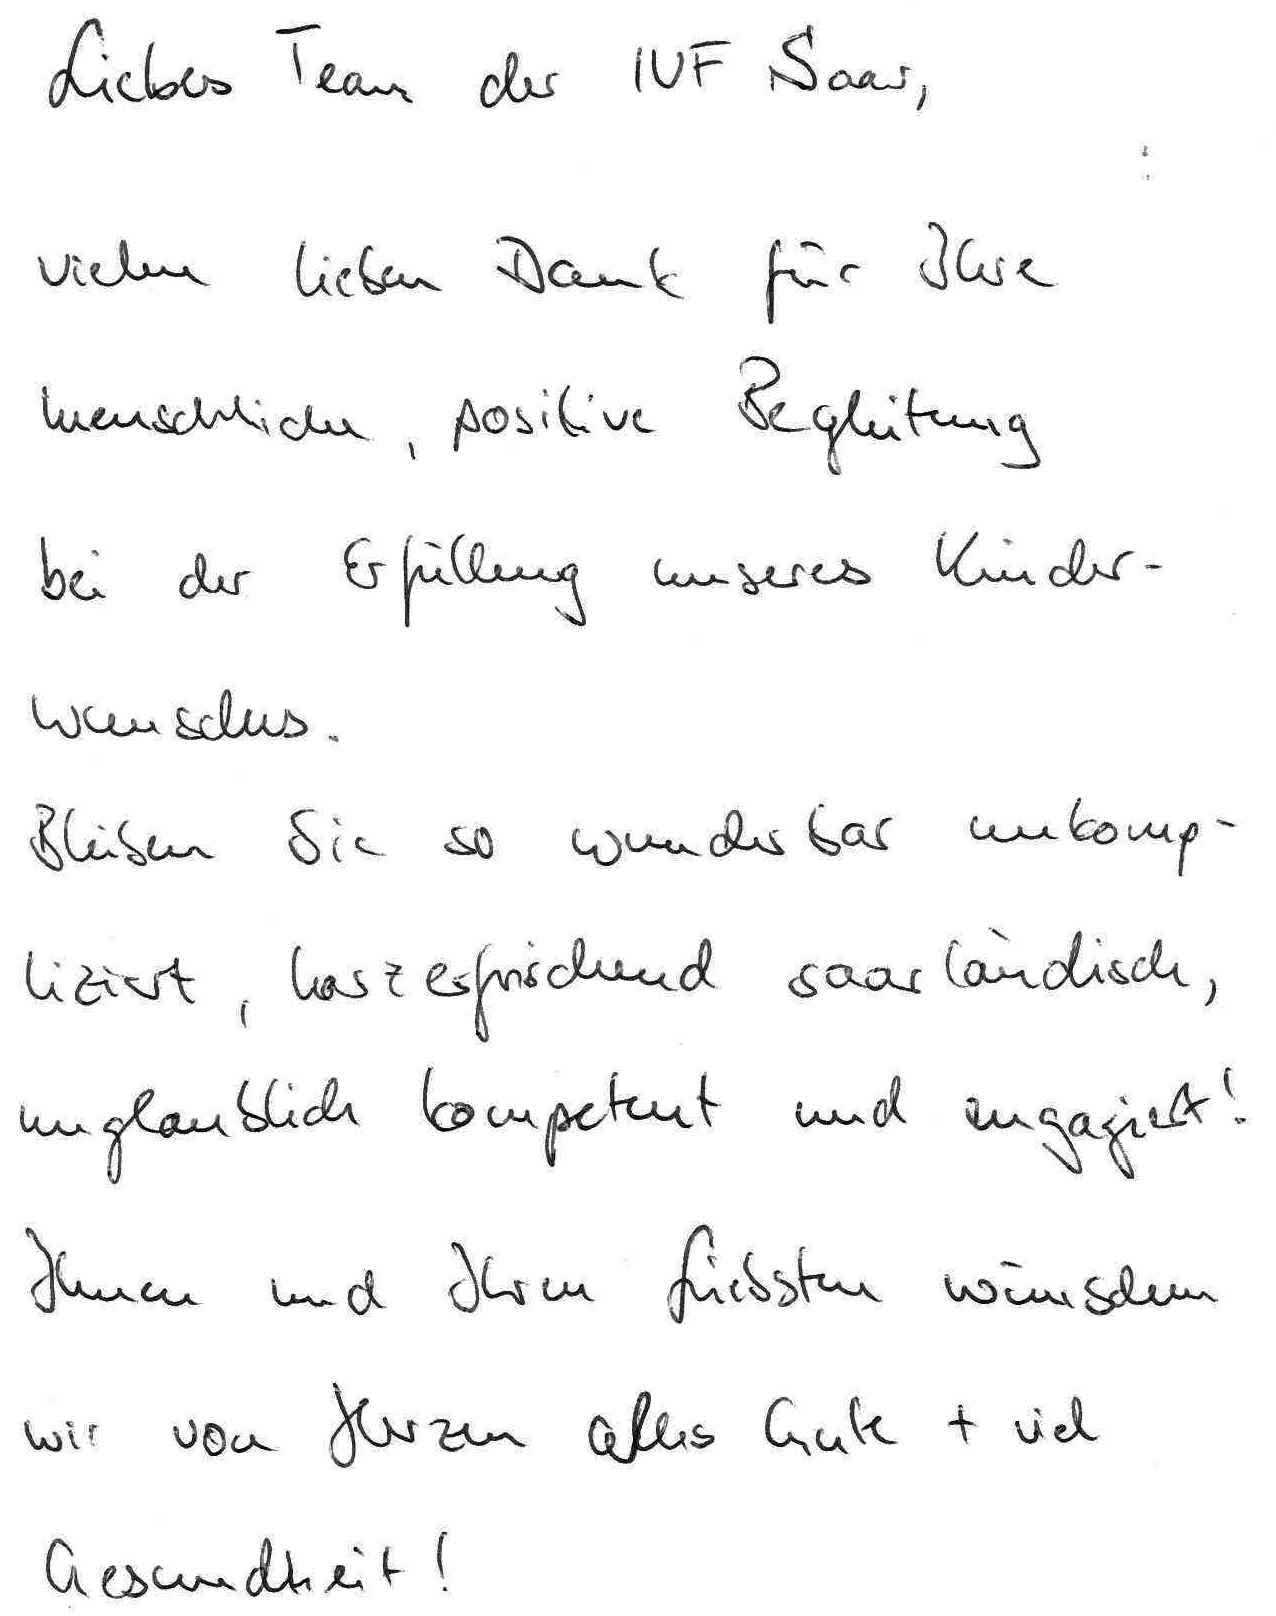 Liebes Team der IVF Saar,
vielen lieben Dank für Ihre
menschliche, positive Begleitung
bei der Erfüllung unseres Kinder-
wunsches.
Bleiben Sie so wunderbar unkomp-
liziert, herzerfrischend saarländisch,
unglaublich kompetent und engagiert!
Ihnen und Ihren Liebsten wünschen
wir von Herzen alles Gute + viel
Gesundheit!